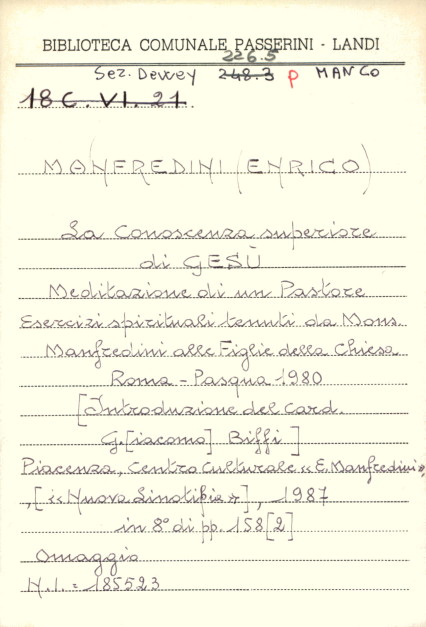 BIBLIOTECA COMUNALE PASSERINI - LANDI
226.5
Sez. Dewey 248.3 p MANCO
18 C. VI. 21.
MANFREDINI (ENRICO)
La Conoscenza superiore
di GESÙ
Meditazione di un Pastore
Esercizi spirituali tenuti da Mons.
Manfredini alle Figlie della Chiesa
Roma - Pasqua 1980
[Introduzione del Card.
G.[iacomo] Biffi]
Piacenza, Centro Culturale «E. Manfredini»,
,[«Nuova Linotipia»], 1987
in 8° di pp. 158[2]
Omaggio
N.I. = 185523